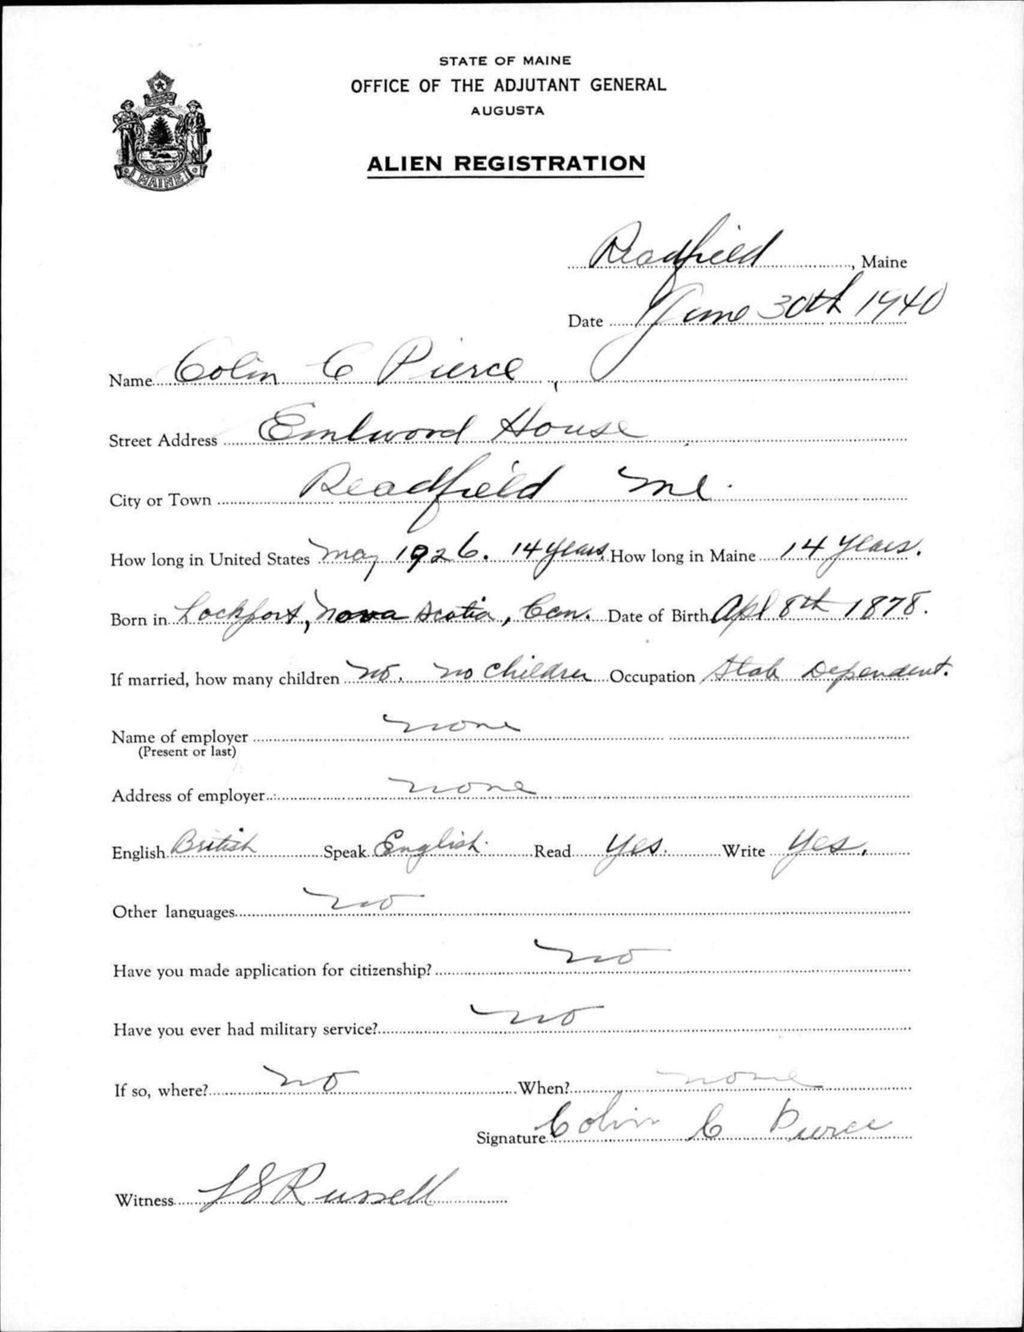 STATE OF MAINE
OFFICE OF THE ADJUTANT GENERAL
AUGUSTA
ALIEN REGISTRATION
MAINE
Readfield, Maine
Date June 30th 1940
Name Colin C Pierce
Street Address Emlwood House
City or Town Readfield Me.
How long in United States May 1926. 14 years. How long in Maine 14 years.
Born in Lockport, Nova Scotia, Can. Date of Birth Apl 8th 1878.
If married, how many children no. no children Occupation State Dependent.
Name of employer none
(Present or last)
Address of employer none
English British Speak English. Read Yes. Write Yes.
Other languages no
Have you made application for citizenship? no
Have you ever had military service? no
If so, where? no When? none
Signature Colin C Pierce
Witness L S Russell